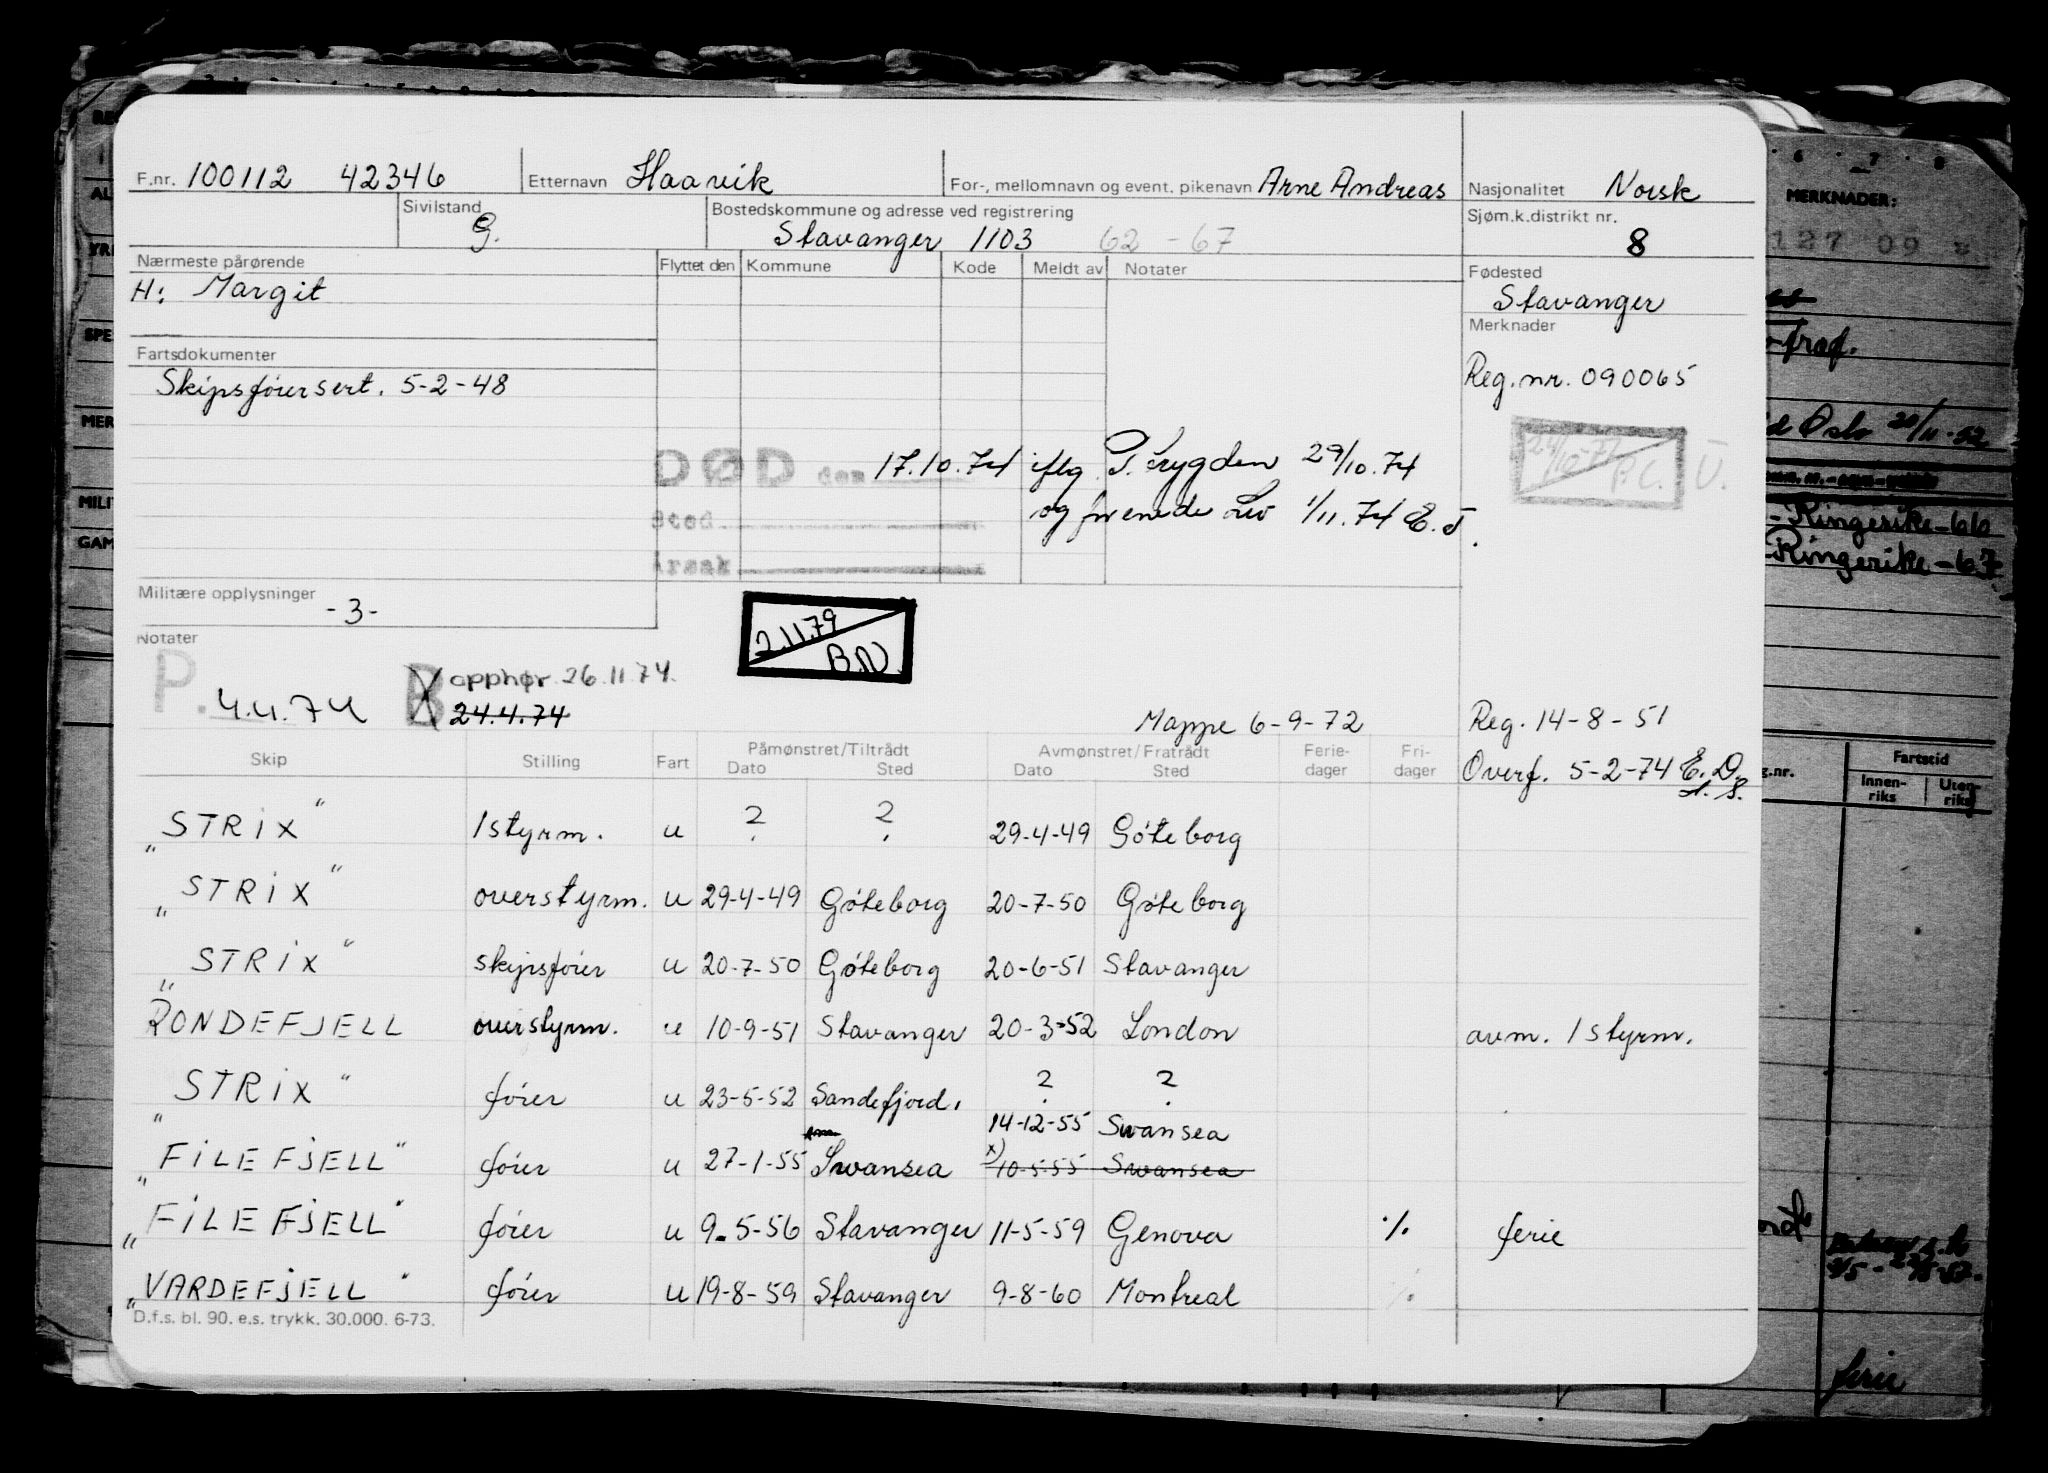 F.nr. 100112 42346 Etternavn Haavik For-, mellomnavn og event. pikenavn Arne Andreas Nasjonalitet Norsk
Sivilstand G. Bostedskommune og adresse ved registrering Stavanger 1103 62 - 67 Sjøm.k.distrikt nr. 8
Nærmeste pårørende Flyttet den Kommune Kode Meldt av Notater Fødested
H: Margit Stavanger
Merknader
Fartsdokumenter
Skipsførersert. 5-2-48 Reg.nr. 090065
DØD den 17.10.74 iflg P. Trygden 29/10.74
Sted og 1/11.74 E.J.
Årsak
24/10-77 P.C. U.
Militære opplysninger -3-
Notater
2.11.79
B.N.
P. 4.4.74 B opphør 26.11.74.
24.4.74
Mappe 6-9-72 Reg. 14-8-51
Overf. 5-2-74 E.D.
Skip Stilling Fart Påmønstret/Tiltrådt Avmønstret/Fratrådt Ferie-dager Fri-dager
Dato Sted Dato Sted
"STRIX" 1styrm. u ? ? 29-4-49 Gøteborg
"STRIX" overstyrm. u 29-4-49 Gøteborg 20-7-50 Gøteborg
"STRIX" skipsfører u 20-7-50 Gøteborg 20-6-51 Stavanger
RONDEFJELL overstyrm. u 10-9-51 Stavanger 20-3-52 London avm. 1styrm.
"STRIX" fører u 23-5-52 Sandefjord. ? ?
14-12-55 Swansea
"FILEFJELL" fører u 27-1-55 Swansea x) 10-5-55 Swansea
"FILEFJELL" fører u 9-5-56 Stavanger 11-5-59 Genova % ferie
"VARDEFJELL" fører u 19-8-59 Stavanger 9-8-60 Montreal %
D.f.s. bl. 90. e.s. trykk. 30.000. 6-73.
6 7 8
MERKNADER:
127 09
Oslo 20/11-52
-Ringerike-66
Ringerike-67
Fartstid
Innen-riks Uten-riks
ferie